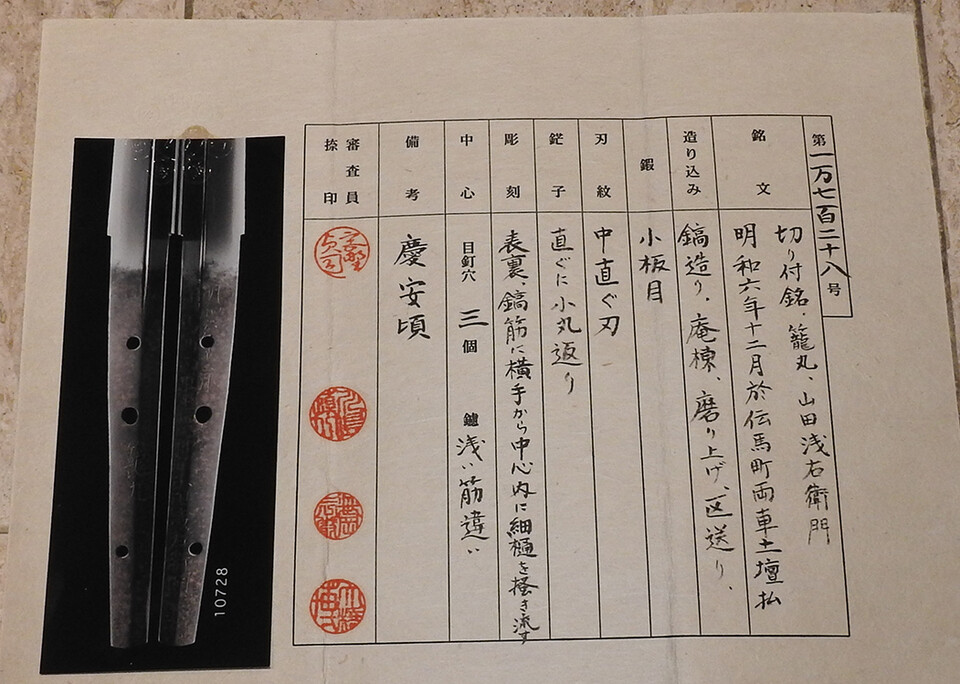 第一万七百二十八号
銘文
切り付銘、籠丸、山田浅右衛門
明和六年十二月於伝馬町両車土壇払
造り込み
鎬造り、庵棟、磨り上げ、区送り、
鍛
小板目
刃紋
中直ぐ刃
鋩子
直ぐに小丸返り
彫刻
表裏、鎬筋に横手から中心内に細樋を掻き流す
中心
目釘穴 三個 鑢 浅い筋違い
備考
慶安頃
審査員
捺印
10728